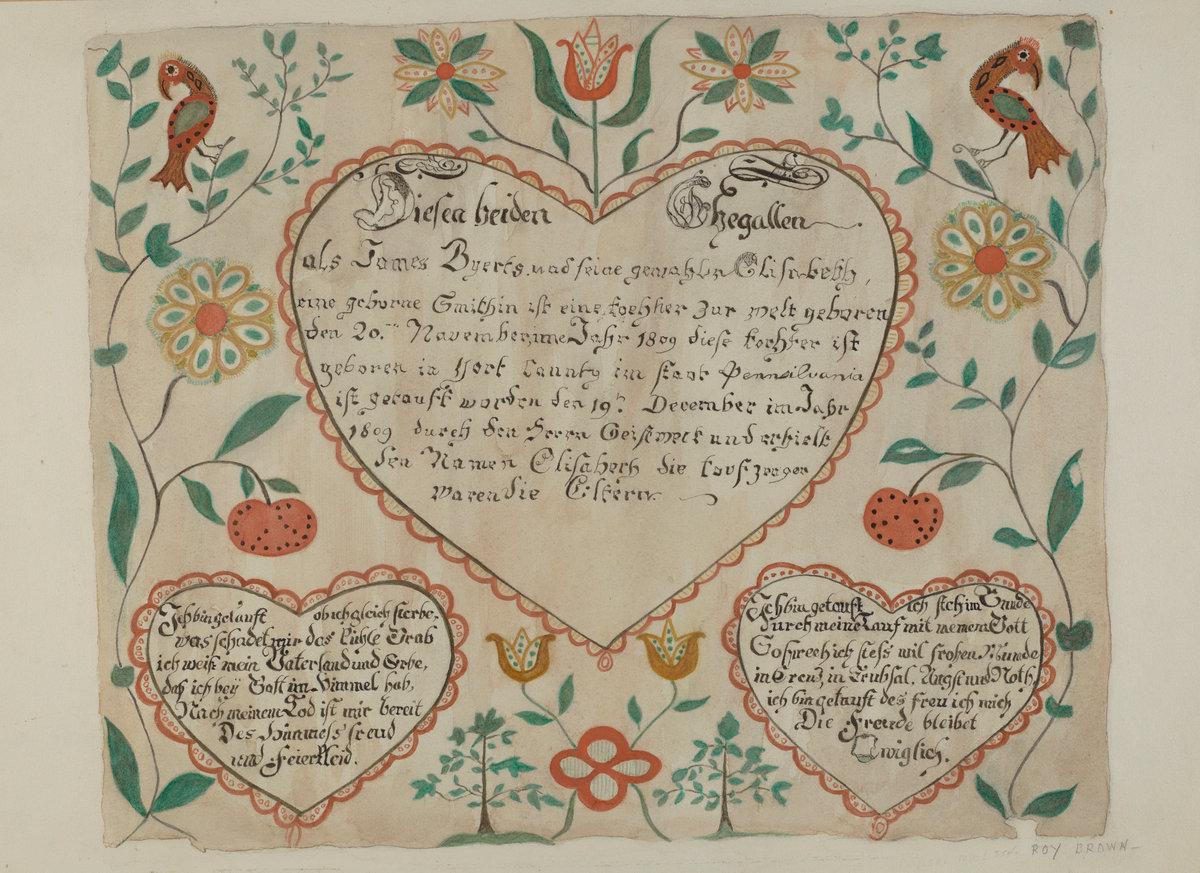 Diesen beiden Ehegatten
als James Byerts und seine gemahlin Elisabeth,
eine geborne Smithin ist eine tochter zur welt geboren
den 20.ten November im Jahr 1809 diese tochter ist
geboren in York Caunty im staat Pennsilvania
ist getauft worden den 19.n December im Jahr
1809 durch den Herrn Geistweit und erhielt
den Namen Elisabeth die taufzeugen
waren die Eltern
Ich bin getauft ob ich gleich sterbe,
was schadet mir das kühle Grab
ich weiß mein Vaterland und Erbe,
daß ich beÿ Gott im Himmel hab,
Nach meinem Tod ist mir bereit
Des Himmels freud
und Feierkleid.
Ich bin getauft ich steh im Bunde
durch meine Tauf mit meinem Gott
So sprech ich stets mit frohen Munde
in Creuz, in Trübsal, Angst und Noth,
ich bin getauft des freu ich mich
Die Freude bleibet
Ewiglich.
ROY BROWN